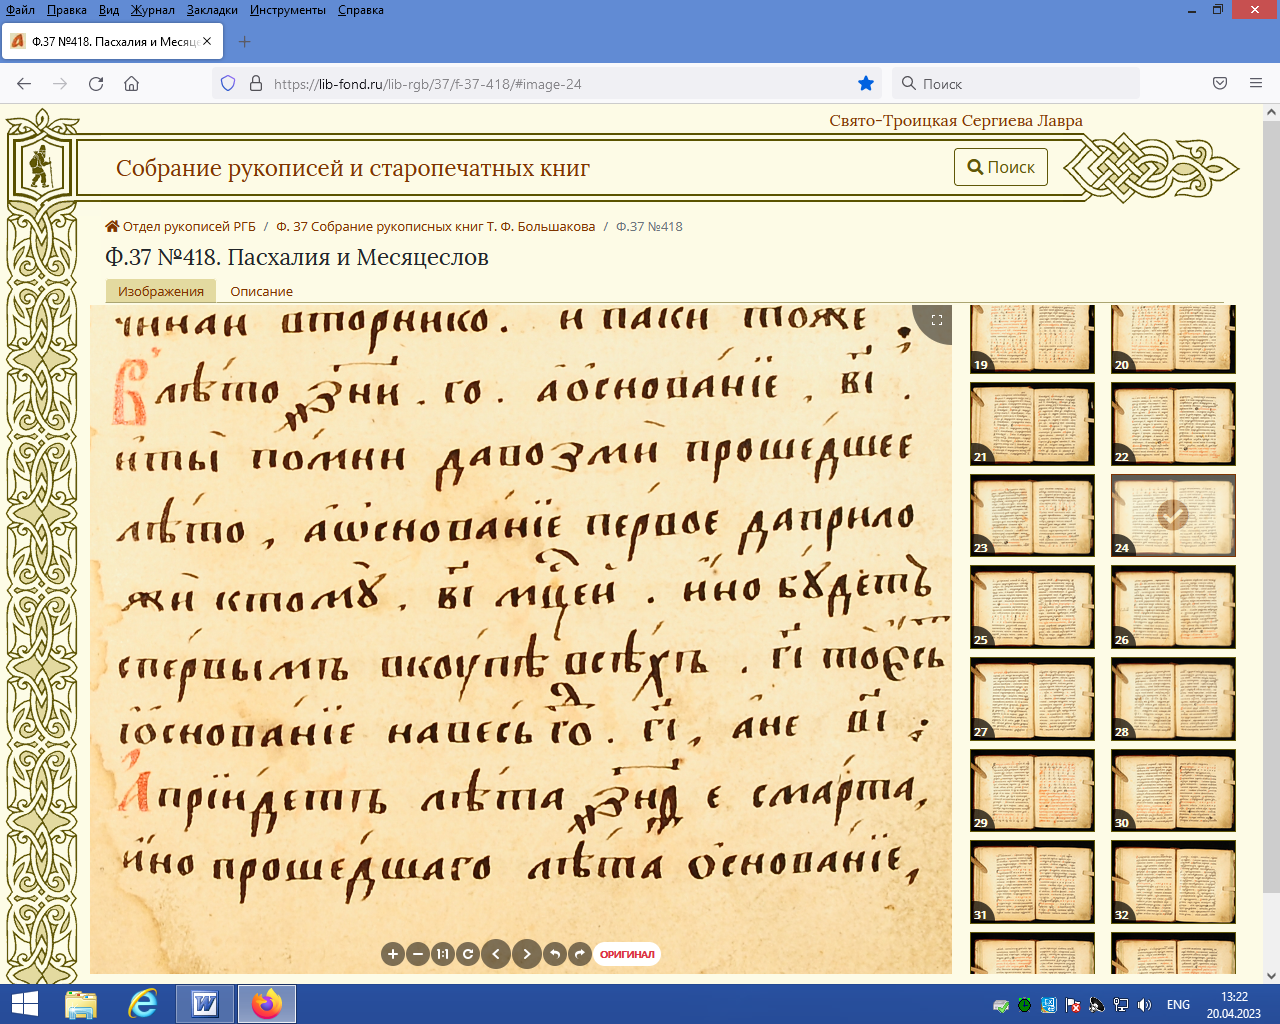 Файл Правка Вид Журнал Закладки Инструменты Справка
Ф.37 №418. Пасхалия и Месяце
https://lib-fond.ru/lib-rgb/37/f-37-418/#image-24
Поиск
Свято-Троицкая Сергиева Лавра
Собрание рукописей и старопечатных книг
Поиск
Отдел рукописей РГБ / Ф. 37 Собрание рукописных книг Т. Ф. Большакова / Ф.37 №418
Ф.37 №418. Пасхалия и Месяцеслов
Изображения Описание
чинаи вторнико. и паки тоже
В лѣто ҂зни. го. а ѻснование, в҃і.
и ты помни даво зми прошедшее
лѣто, а ѡснование первое даприло
жи ктомꙋ, в҃і мц҃еи. ино бꙋдетъ
спервымъ вкоупѣ всѣхъ. г҃і тоесь
ѻснованїе навесь го. г҃і, ане в҃і;
Априидетъ лѣта ҂знѳ е смарта,
ино прошедшаго лѣта ѻснованїе,
ОРИГИНАЛ
19 20
21 22
23 24
25 26
27 28
29 30
31 32
ENG
13:22
20.04.2023